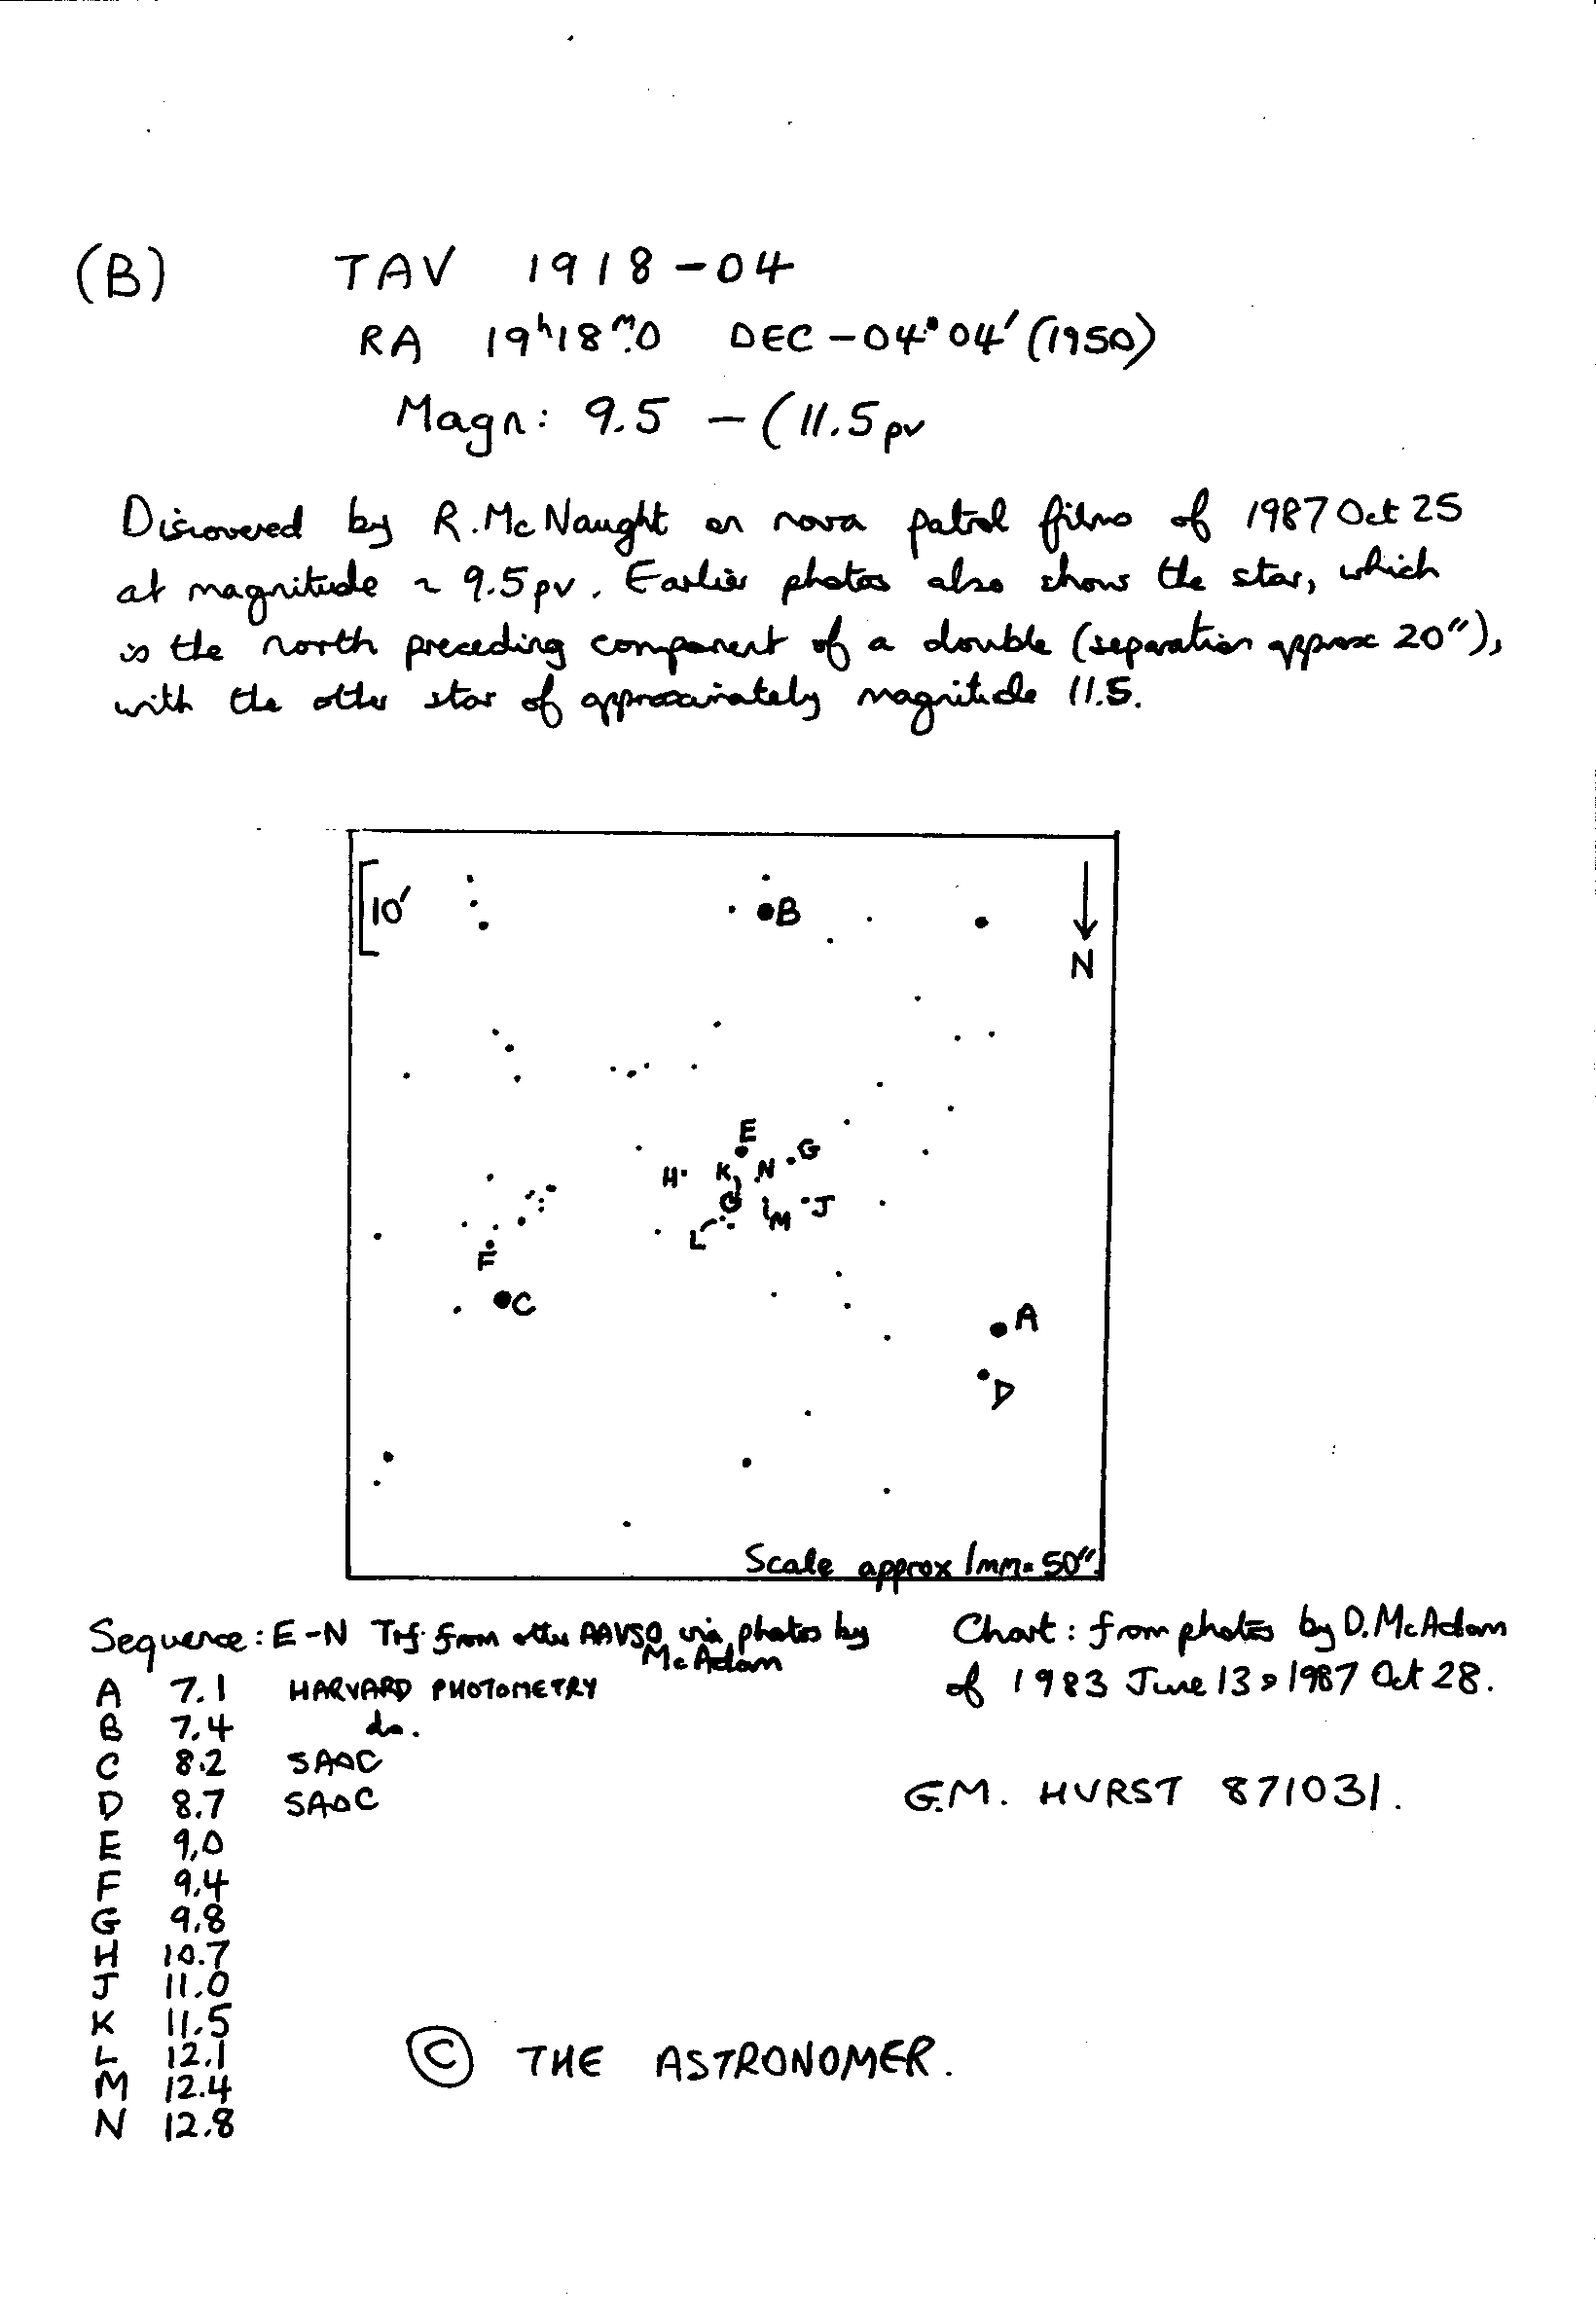 (B) TAV 1918-04
RA 19ʰ18ᵐ.0 DEC -04°04′ (1950)
Magn: 9.5 - (11.5pv
Discovered by R. McNaught on nova patrol films of 1987 Oct 25
at magnitude ~ 9.5pv. Earlier photos also show the star, which
is the north preceding component of a double (separation approx 20″),
with the other star of approximately magnitude 11.5.
10′
B
N
E
G
H
K
N
J
M
L
F
C
A
D
Scale approx 1mm=50″
Sequence: E-N Trf. from other AAVSO via photos by
McAdam
A 7.1 HARVARD PHOTOMETRY
B 7.4 do.
C 8.2 SAOC
D 8.7 SAOC
E 9.0
F 9.4
G 9.8
H 10.7
J 11.0
K 11.5
L 12.1
M 12.4
N 12.8
Chart: from photos by D. McAdam
of 1983 June 13 & 1987 Oct 28.
G.M. HURST 871031.
© THE ASTRONOMER.